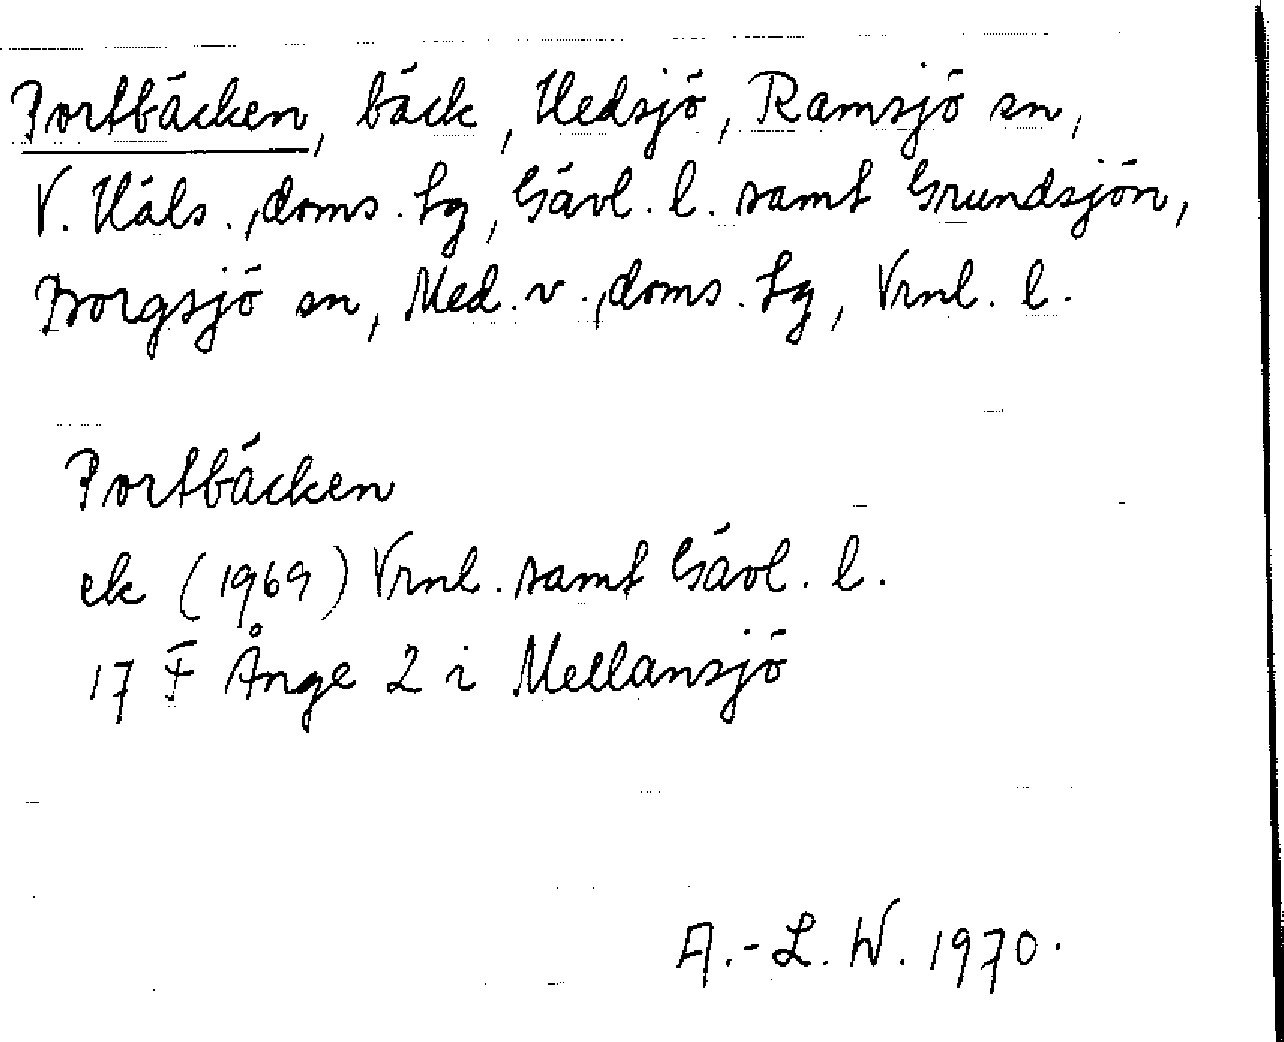 Portbäcken, bäck, Hedsjö, Ramsjö sn,
V. Häls. doms. tg, Gävl. l. samt Grundsjön,
Borgsjö sn, Med. v. doms. tg, Vrnl. l.
Portbäcken
ek (1969) Vrnl. samt Gävl. l.
17 F Ånge 2 i Mellansjö
A.-L. W. 1970.